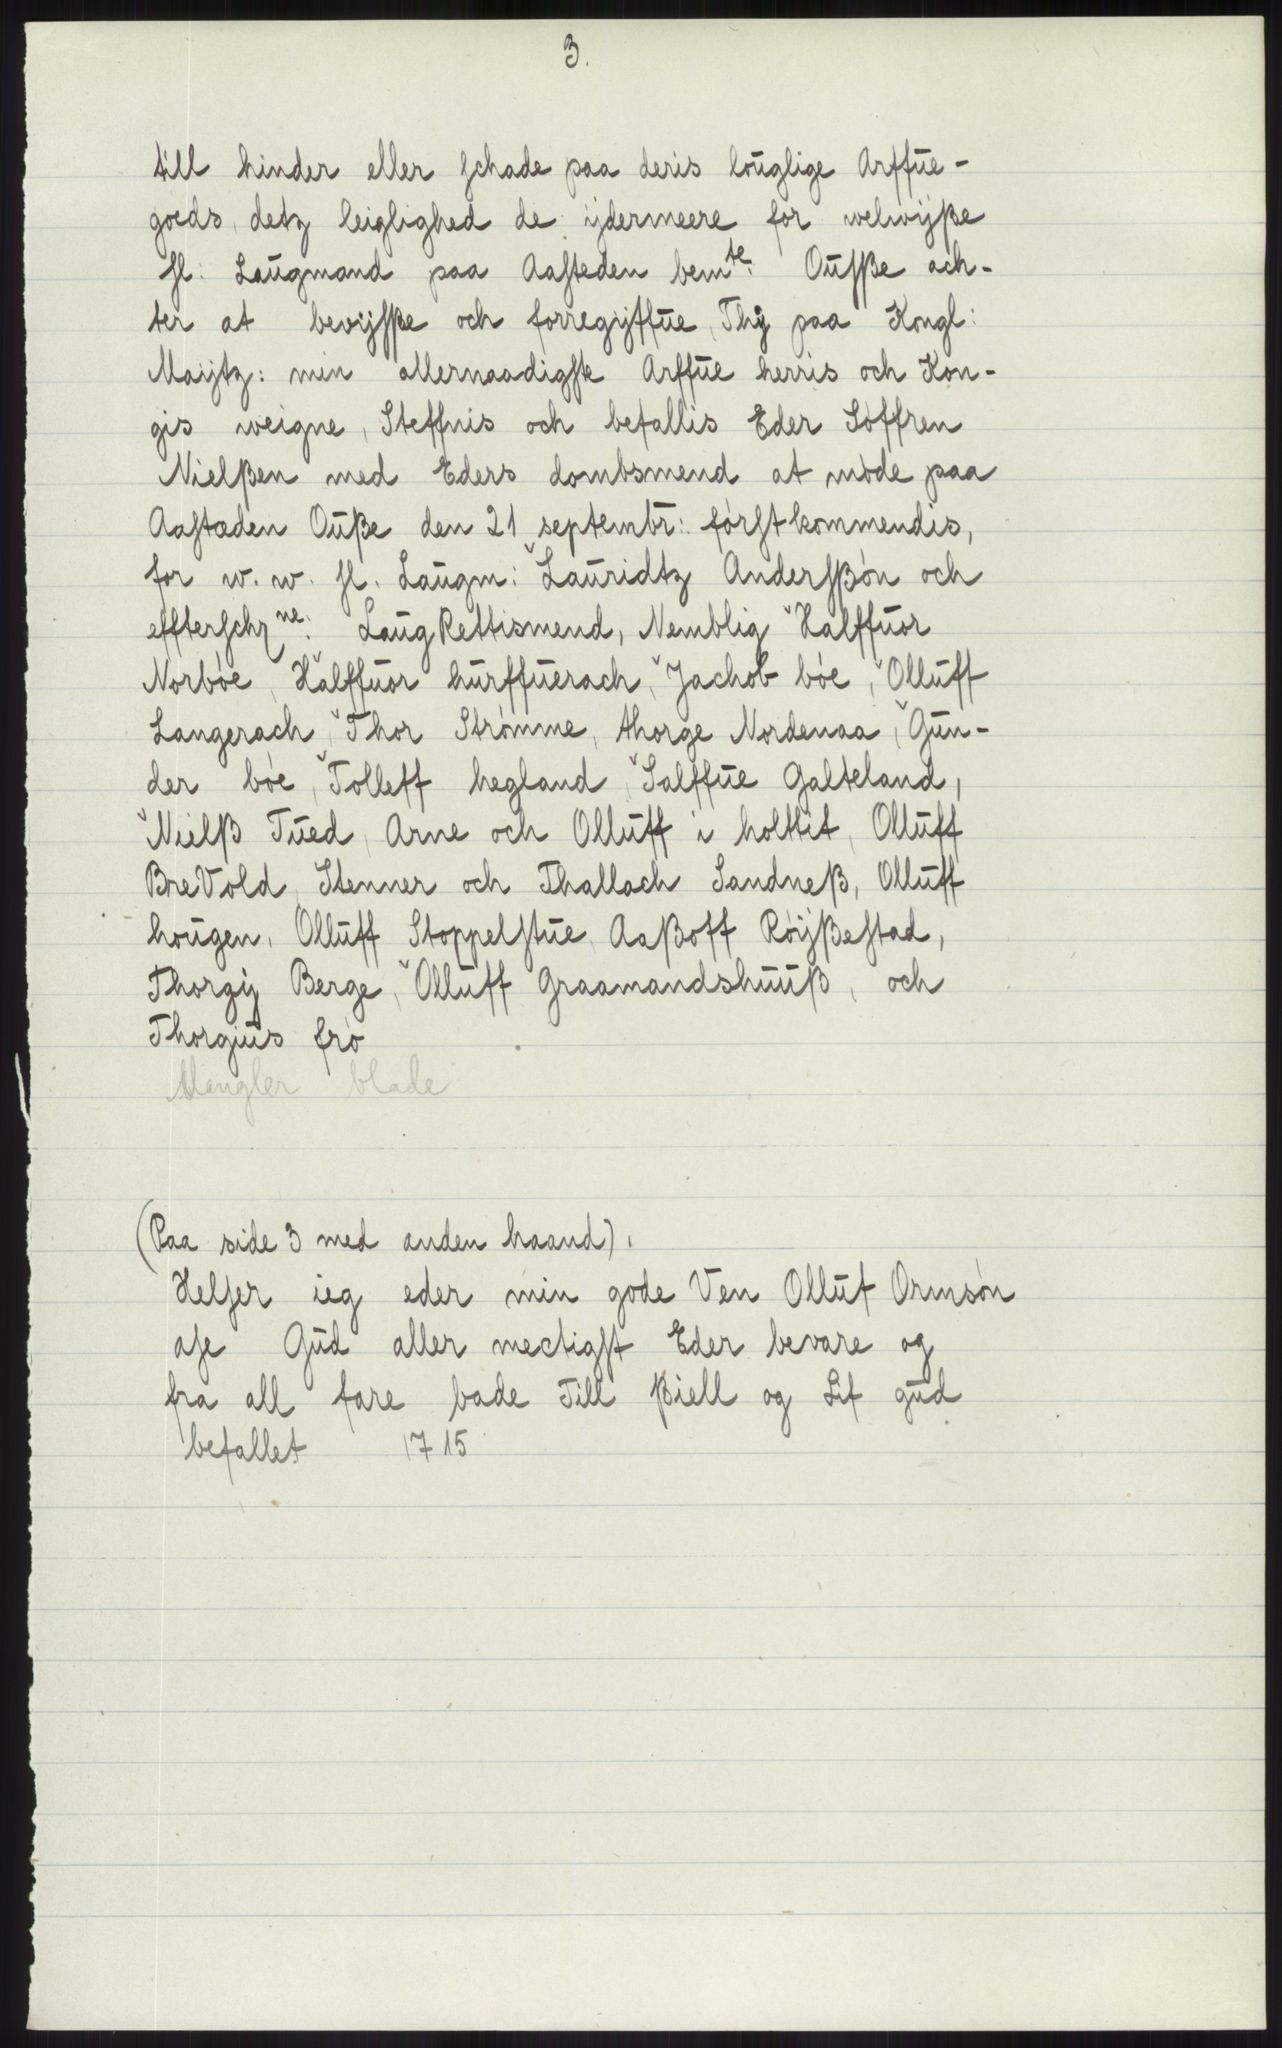 3.
till hinder eller schade paa deris louglige Arffue-
goeds, detz leiglighed de ijdermeere for welwijße
Hl: Laugmand paa Aasteden bemte: Oufße ach-
ter at bevijsße och forregijffue, Thÿ paa Kongl:
Maijtz: min allernaadigste Arffue herris och Kon-
gis weigne, Steffnis och befallis Eder Søffren
Nielßen med Eders dombsmend at møde paa
Aastæden Ouße den 21 septembr: førstkommendis,
for w. w. Hl. Laugm: Lauridtz Andersßøn och
effterschrne: LaugRettismend, Nemblig Halffuor
Norbøe, Halffuor hurffuerach, Jachob bøe, Olluff
Langerach, Thor Strømme, thorge Nordenaa, Gun-
der bøe, Tolleff hegland, Salffue Galteland,
Nielß Tued, Arne och Olluff i holttit, Olluff
BreVold, Stenner och Thallach Sandneß, Olluff
hougen, Olluff Stoppelstue, Aaßoff Røijßestad,
Thorgij Berge, Olluff Graamandshuuß, och
Thorgius frø
Mangler blade
(Paa side 3 med anden haand).
Helser ieg eder min gode Ven Olluf Ormsøn
ase Gud aller mectigst Eder bevare og
fra all fare bade Till ßiell og Lif gud
befallet 1715